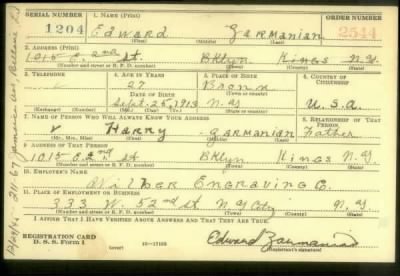 SERIAL NUMBER 1. NAME (Print) ORDER NUMBER
1204 Edward Garmanian 2544
(First) (Middle) (Last)
2. ADDRESS (Print)
1015 E. 2nd St. Bklyn Kings N.Y.
(Number and street or R. F. D. number) (Town) (County) (State)
3. TELEPHONE 4. AGE IN YEARS 5. PLACE OF BIRTH 6. COUNTRY OF CITIZENSHIP
27 Bronx
DATE OF BIRTH
Sept. 25, 1913 N.Y U.S.A.
(Exchange) (Number) (Mo.) (Day) (Yr.) (State or country)
7. NAME OF PERSON WHO WILL ALWAYS KNOW YOUR ADDRESS 8. RELATIONSHIP OF THAT PERSON
Harry Garmanian Father
(Mr., Mrs., Miss) (First) (Middle) (Last)
9. ADDRESS OF THAT PERSON
1015 E. 2nd St Bklyn Kings N.Y.
(Number and street or R. F. D. number) (Town) (County) (State)
10. EMPLOYER'S NAME
Wilbar Engraving Co.
11. PLACE OF EMPLOYMENT OR BUSINESS
333 W. 52nd St NY City N.Y.
(Number and street or R. F. D. number) (Town) (County) (State)
I AFFIRM THAT I HAVE VERIFIED ABOVE ANSWERS AND THAT THEY ARE TRUE.
REGISTRATION CARD
D. S. S. Form 1 (over) 16-17105 Edward
(Registrant's signature)